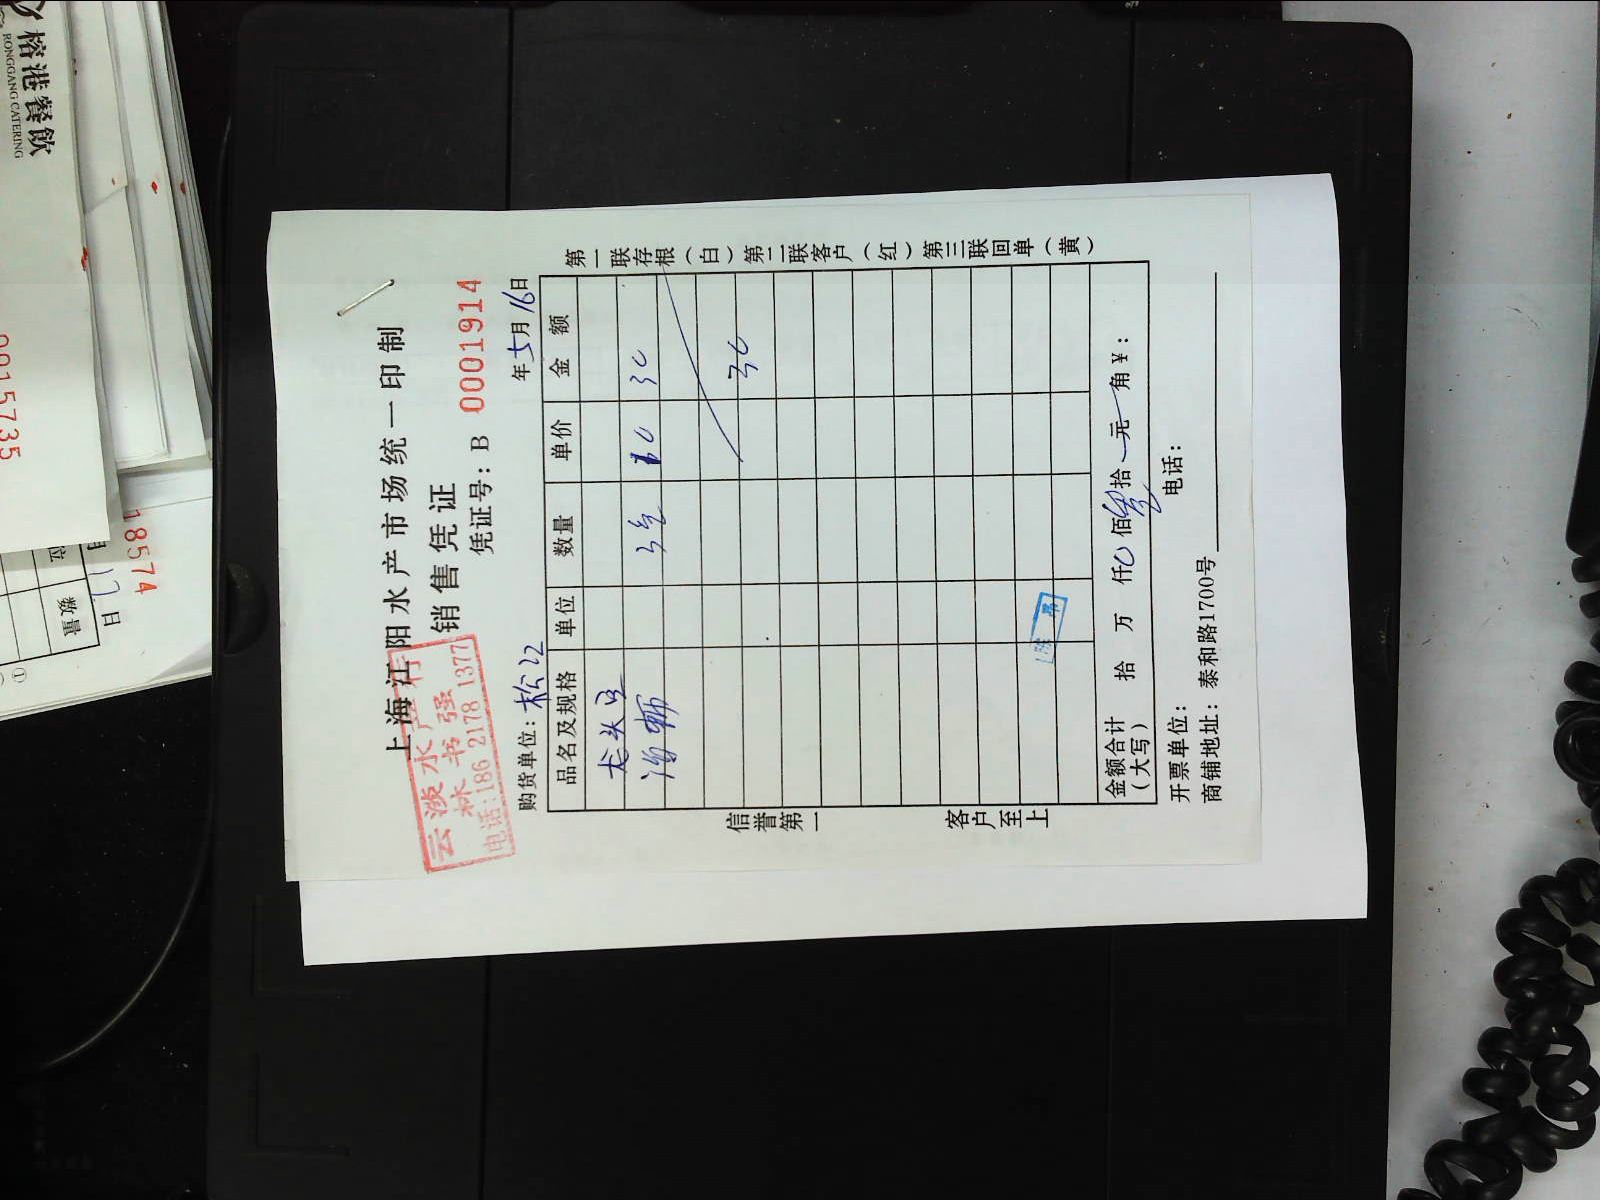 上海江阳水产市场统一印制
销售凭证
凭证号：B 0001914
云淡水产行
林书强
电话：186 2178 1377
购货单位：松江 年5月16日
品名及规格 单位 数量 单价 金额
龙头豆
海 3 10 30
30
金额合计（大写） 拾 万 仟 佰 拾 元 角 ¥：
开票单位： 电话：
商铺地址：泰和路1700号
第一联存根（白）第二联客户（红）第三联回单（黄）
信誉第一
客户至上
榕港餐饮
RONGGANG CATERING
0015735
18574
17日
数量